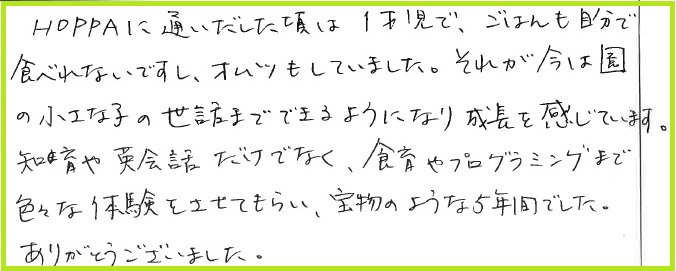 HOPPAに通いだした頃は1才児で、ごはんも自分で
食べれないですし、オムツもしていました。それが今は園
の小さな子の世話までできるようになり成長を感じています。
知育や英会話だけでなく、食育やプログラミングまで
色々な体験をさせてもらい、宝物のような5年間でした。
ありがとうございました。